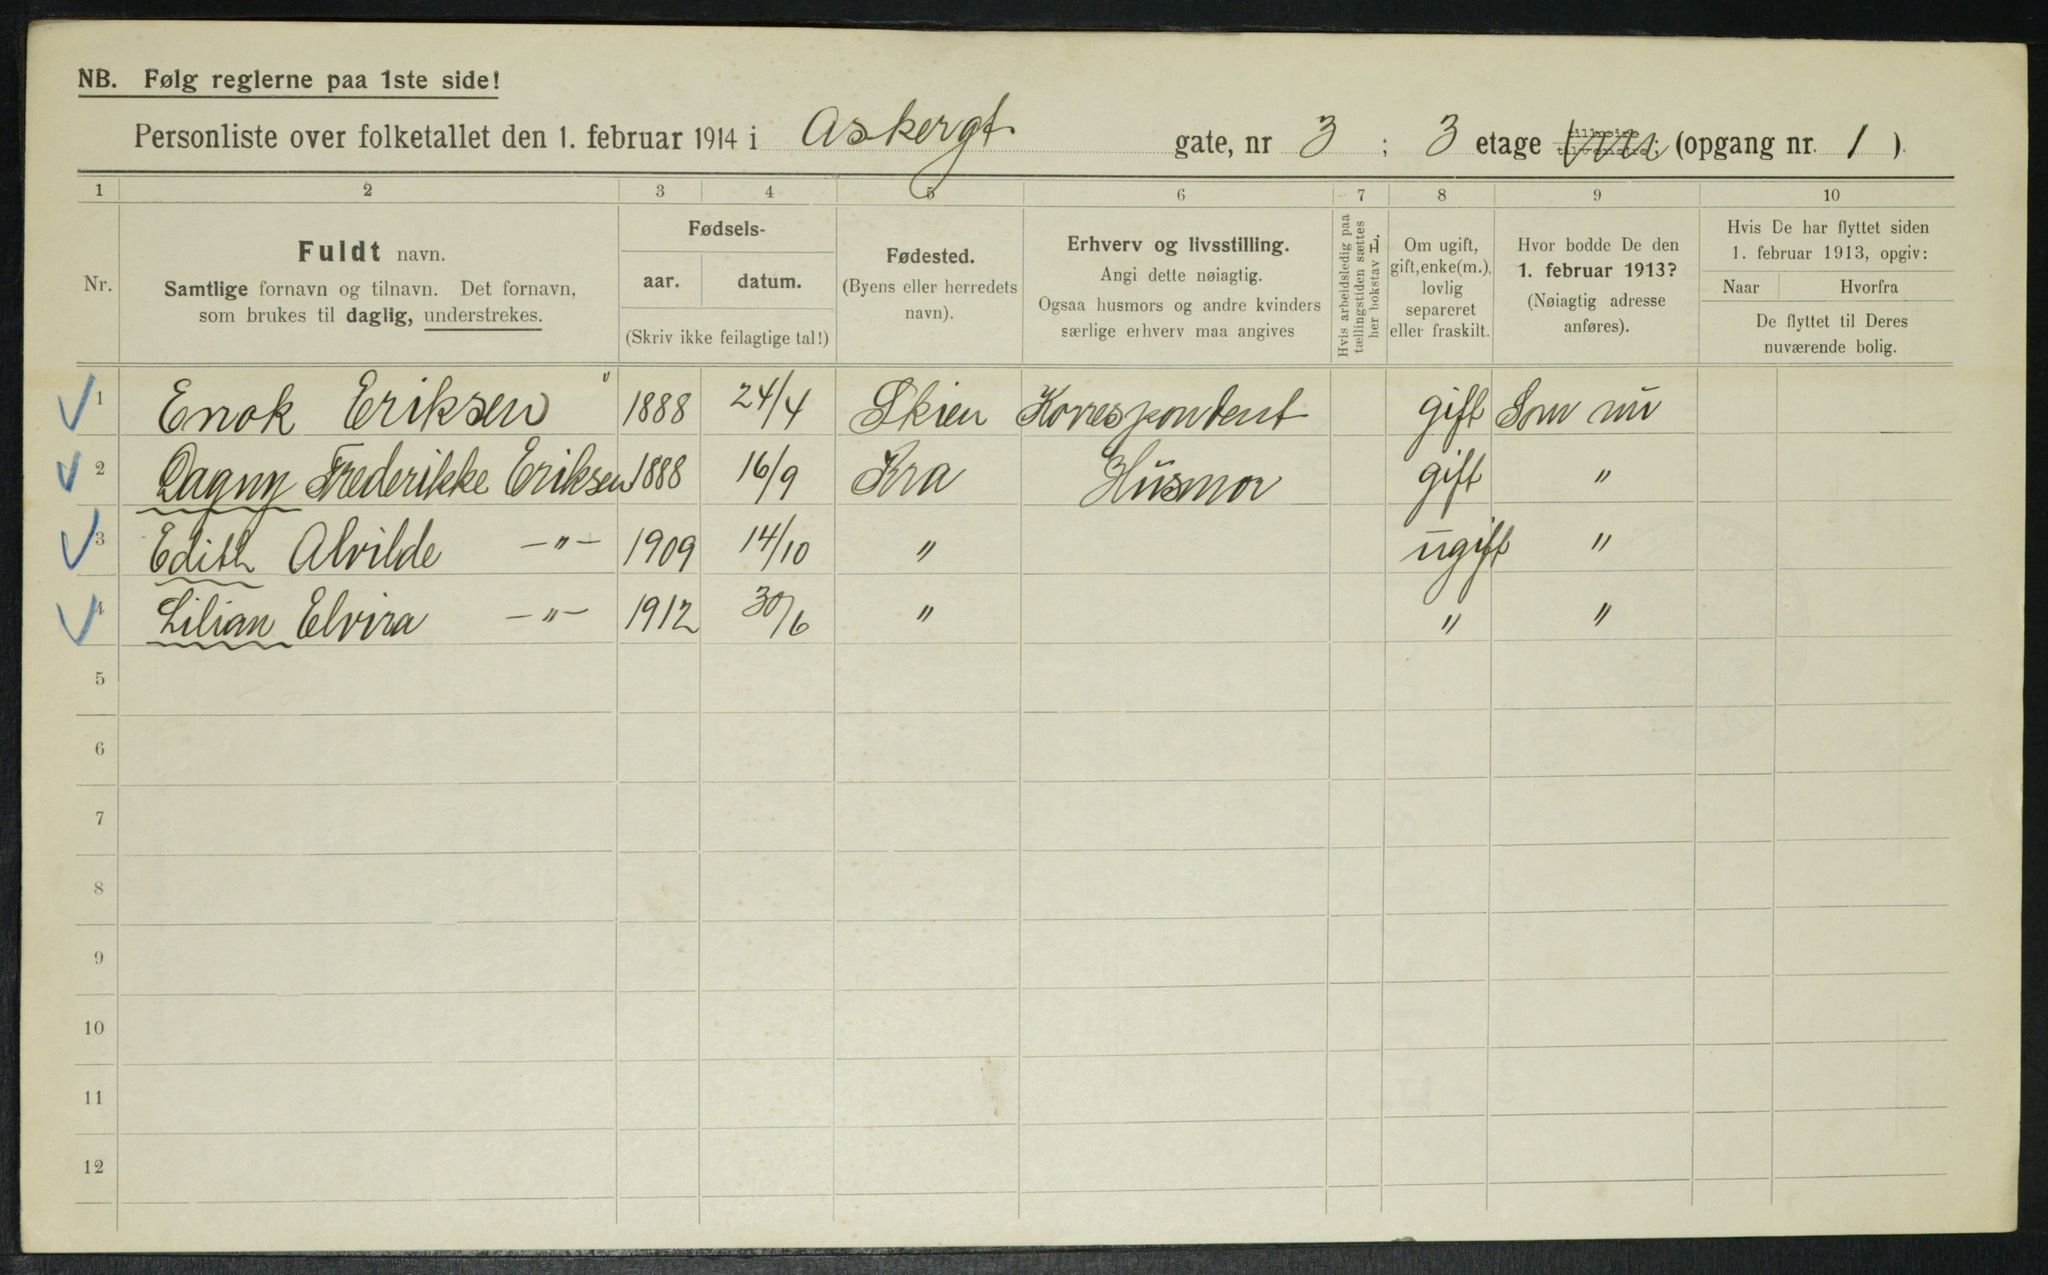 NB. Følg reglerne paa 1ste side!
Personliste over folketallet den 1. februar 1914 i Askergt. gate, nr 3 ; 3 etage (opgang nr. 1 ).
1 2 3 4 5 6 7 8 9 10
Nr.
Fuldt navn.
Samtlige fornavn og tilnavn. Det fornavn,
som brukes til daglig, understrekes.
Fødsels-
aar. datum.
(Skriv ikke feilagtige tal!)
Fødested.
(Byens eller herredets
navn).
Erhverv og livsstilling.
Angi dette nøiagtig.
Ogsaa husmors og andre kvinders
særlige erhverv maa angives
Hvis arbeidsledig paa
tællingstiden sættes
her bokstav L.
Om ugift,
gift, enke(m.),
lovlig
separeret
eller fraskilt.
Hvor bodde De den
1. februar 1913?
(Nøiagtig adresse
anføres).
Hvis De har flyttet siden
1. februar 1913, opgiv:
Naar Hvorfra
De flyttet til Deres
nuværende bolig.
1 Enok Eriksen 1888 24/4 Skien Korrespondent gift Som nu
2 Dagny Frederikke Eriksen 1888 16/9 Kra Husmor gift "
3 Edith Alvilde —"— 1909 14/10 " ugift "
4 Lilian Elvira —"— 1912 30/6 " " "
5
6
7
8
9
10
11
12